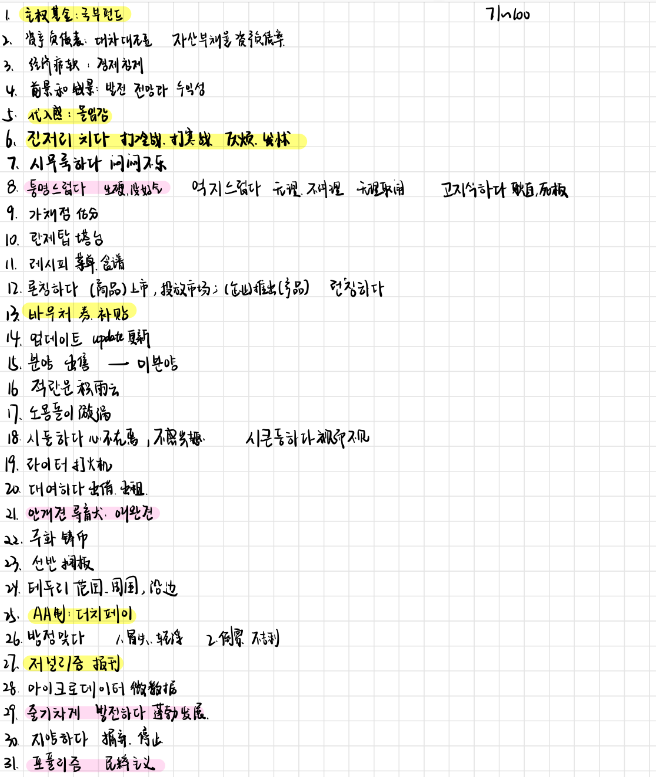 71~100
1. 主权基金: 국부펀드
2. 资产负债表: 대차대조표 자산부채율 资产负债率
3. 经济疲软: 경제침체
4. 前景和 : 발전 전망과 수익성
5. 代入感: 몰입감
6. 진저리 치다 打冷战. 打寒战 厌烦.
7. 시무룩하다 闷闷不乐
8. 퉁명스럽다 生硬, 没好气 억지스럽다 无理. 不讲理 无理取闹 고지식하다 耿直, 死板
9. 가채점 估分
10. 관제탑 塔台
11. 레시피 菜单. 食谱
12. 론칭하다 (商品)上市, 投放市场; (企业)推出(产品) 런칭하다
13. 바우처 券. 补贴
14. 업데이트 update 更新
15. 분양 出售 — 미분양
16 적란운 积雨云
17. 소용돌이 漩涡
18. 시들하다 心不在焉, 不感兴趣. 시큰둥하다 视而不见
19. 라이터 打火机
20. 대여하다 出借. 出租.
21. 안개견 导盲犬. 애완견
22. 주화 铸币
23. 선반 搁板
24. 테두리 范围. 周围, 沿边
25. AA制: 더치페이
26. 방정맞다 1. 冒失. 轻浮 2. 倒霉. 不吉利
27. 저널리즘 报刊
28. 마이크로데이터 微数据
29. 줄기차게 발전하다 蓬勃发展.
30. 지양하다 摒弃. 停止
31. 포퓰리즘 民粹主义